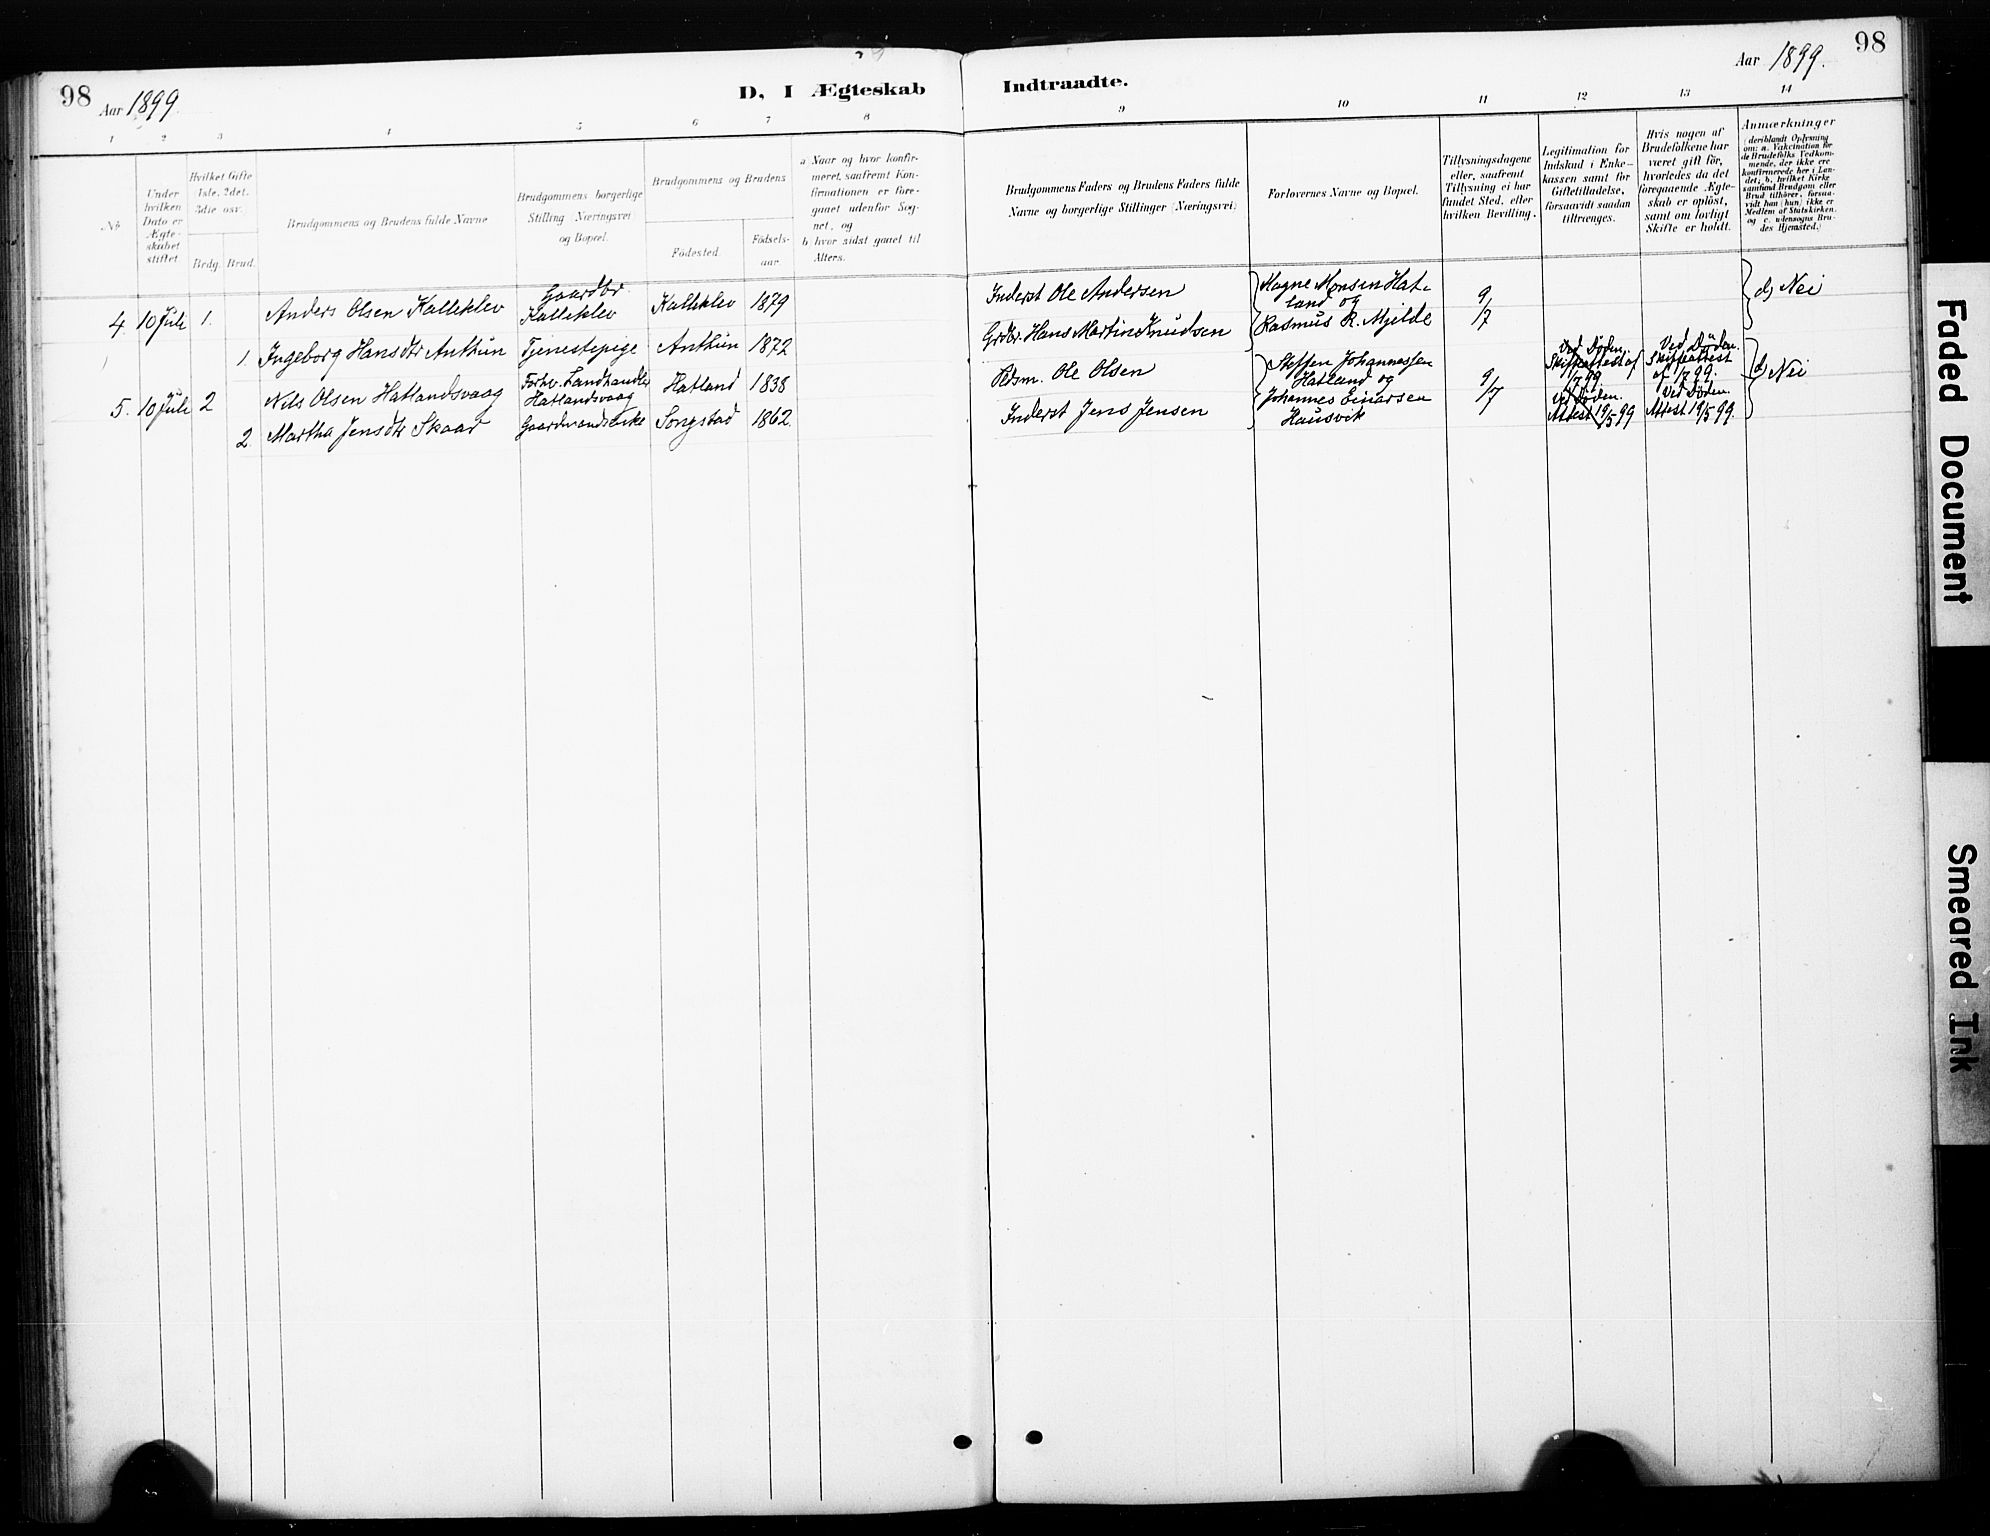 98
Aar 1899
D, I Ægteskab
Indtraadte.
Aar 1899.
98
1 2 3 4 5 6 7 8
9 10 11 12 13 14
No
Under hvilken Dato er Ægte-skabet stiftet
Hvilket Gifte 1ste, 2det, 3die osv.
Brdg. Brud.
Brudgommens og Brudens fulde Navne
Brudgommens borgerlige Stilling (Næringsvei) og Bopæl.
Brudgommens og Brudens
Fødested.
Fødsels-aar.
a Naar og hvor konfir-
meret, saafremt Kon-
firmationen er fore-
gaaet udenfor Sog-
net, og
b hvor sidst gaaet til
Alters.
Brudgommens Faders og Brudens Faders fulde
Navne og borgerlige Stillinger (Næringsvei)
Forlovernes Navne og Bopæl.
Tillysningsdagene
eller, saafremt
Tillysning ei har
fundet Sted, efter
hvilken Bevilling.
Legitimation for
Indskud i Enke-
kassen samt for
Giftetilladelse,
forsaavidt saadan
tiltrænges.
Hvis nogen af
Brudefolkene har
været gift før,
hvorledes da det
foregaaende Ægte-
skab er opløst,
samt om lovligt
Skifte er holdt.
Anmærkninger
(deriblandt Oplysning
om: a. Vakcination for
de Brudefolks Vedkom-
mende, der ikke ere
konfirmerede her i Lan-
det; b. hvilket Kirke-
samfund Brudgom eller
Brud tilhører, forsaa-
vidt han (hun) ikke er
Medlem af Statskirken,
og c. udensogns Bru-
des Hjemsted.)
4. 10 Juli 1. Anders Olsen Kalleklev Gaardbr Kalleklev Kalleklev 1879 Inderst Ole Andersen Magne Monsen Hat-
land og Rasmus R. Mjelde 9/7 d) Nei
1. Ingeborg Hansdtr Anthun Tjenestepige Anthun 1872 Grdbr. Hans Martin Knudsen
5. 10 Juli 2 Nils Olsen Hatlandsvaag Forhv. Landhandler Hatlandsvaag Hatland 1838 Pldsm. Ole Olsen Steffen Johannessen Hatland og Johannes Einarsen Hausvik 9/7 Ved Døden. Skifteattest af 1/7 99. Ved Døden. Skifteattest af 1/7 99. d) Nei
2. Martha Jensdtr Skaar Gaardmandsenke Songstad 1862. Inderst Jens Jensen Ved Døden. Attest 19/5 99 Ved Døden. Attest 19/5 99.
Faded Document
Smeared Ink